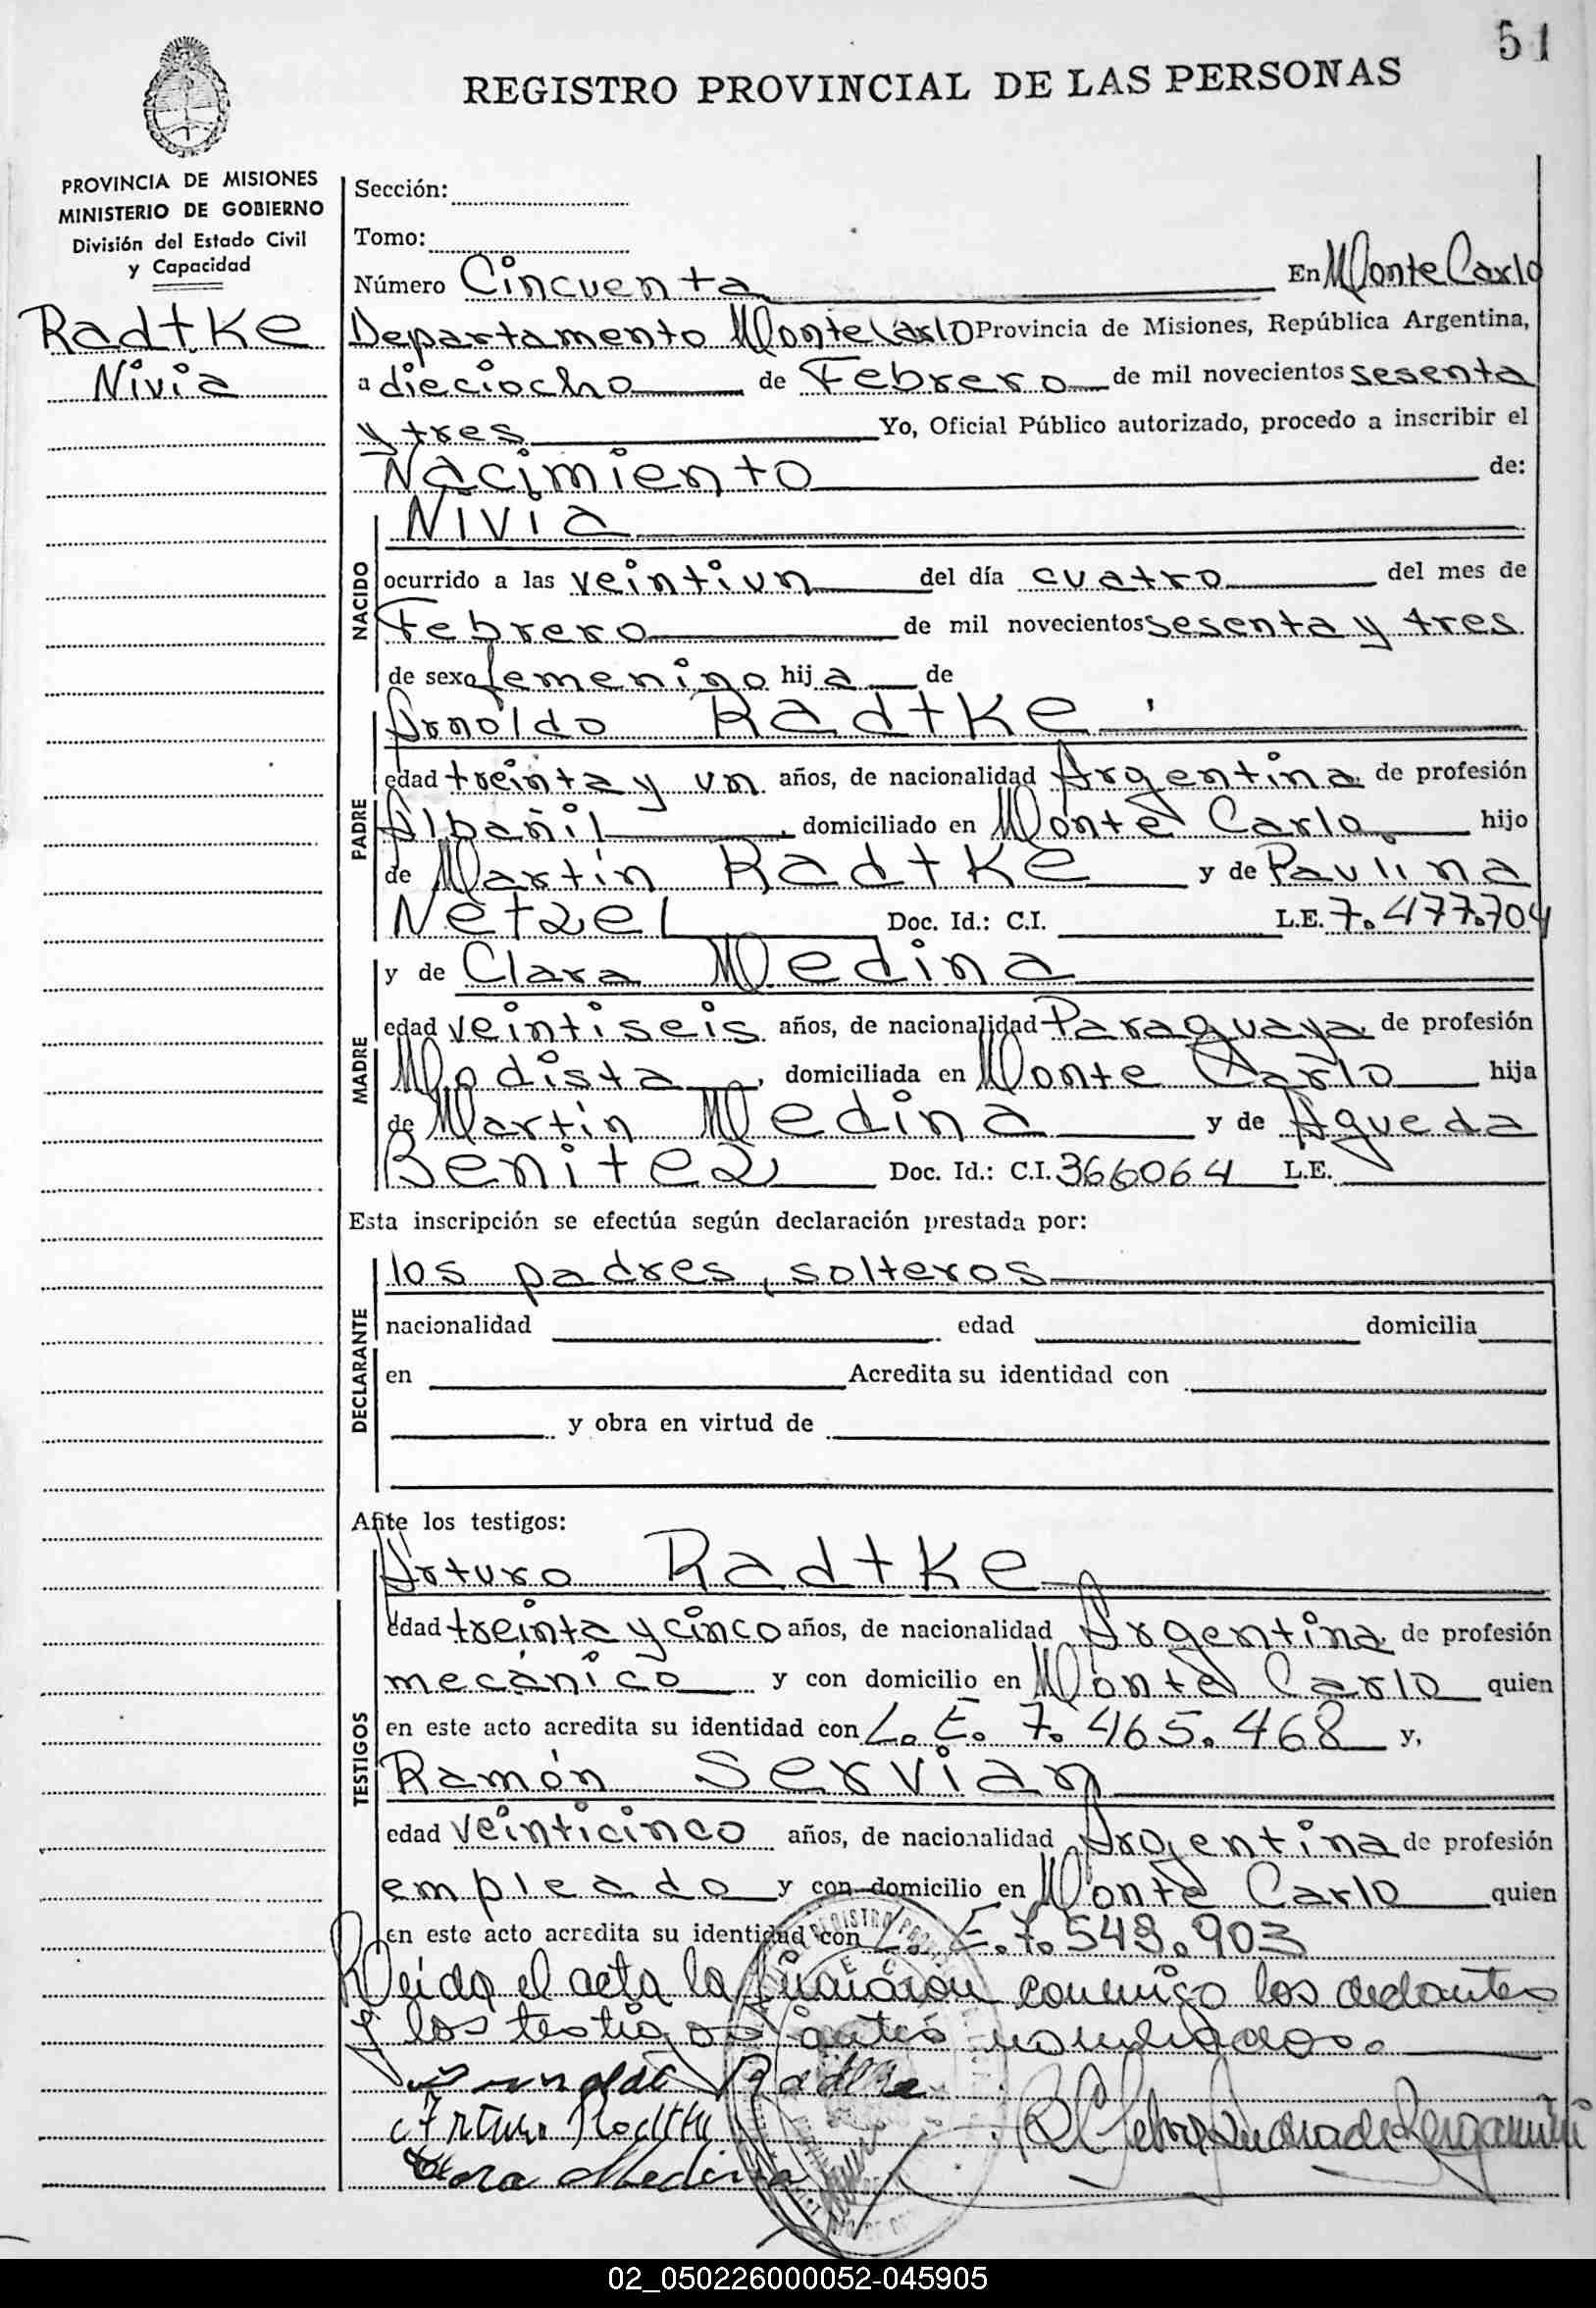 51
REGISTRO PROVINCIAL DE LAS PERSONAS
PROVINCIA DE MISIONES
MINISTERIO DE GOBIERNO
División del Estado Civil
y Capacidad
Radtke
Nivia
Sección:
Tomo:
Número Cincuenta En Monte Carlo
Departamento Monte Carlo Provincia de Misiones, República Argentina,
a dieciocho de Febrero de mil novecientos sesenta
y tres Yo, Oficial Público autorizado, procedo a inscribir el
Nacimiento de:
NACIDO
Nivia
ocurrido a las veintiun del día cuatro del mes de
Febrero de mil novecientos sesenta y tres
de sexo femenino hija de
PADRE
Arnoldo Radtke
edad treinta y un años, de nacionalidad Argentina de profesión
Albañil, domiciliado en Monte Carlo hijo
de Martin Radtke y de Paulina
Netzel Doc. Id.: C.I. L.E. 7.477.704
MADRE
y de Clara Medina
edad veintiseis años, de nacionalidad Paraguaya de profesión
Modista, domiciliada en Monte Carlo hija
de Martin Medina y de Agueda
Benitez Doc. Id.: C.I. 366064 L.E.
Esta inscripción se efectúa según declaración prestada por:
DECLARANTE
los padres, solteros
nacionalidad edad domicilia
en Acredita su identidad con
y obra en virtud de
Ante los testigos:
TESTIGOS
Arturo Radtke
edad treinta y cinco años, de nacionalidad Argentina de profesión
mecánico y con domicilio en Monte Carlo quien
en este acto acredita su identidad con L. E. 7.465.468 y,
Ramón Servian
edad veinticinco años, de nacionalidad Argentina de profesión
empleado y con domicilio en Monte Carlo quien
en este acto acredita su identidad con L. E. 7.549.903
Leida el acta la firmaron conmigo los declarantes
y los testigos antes nombrados.
Arnoldo Radtke
Arturo Radtke
Clara Medina
02_050226000052-045905